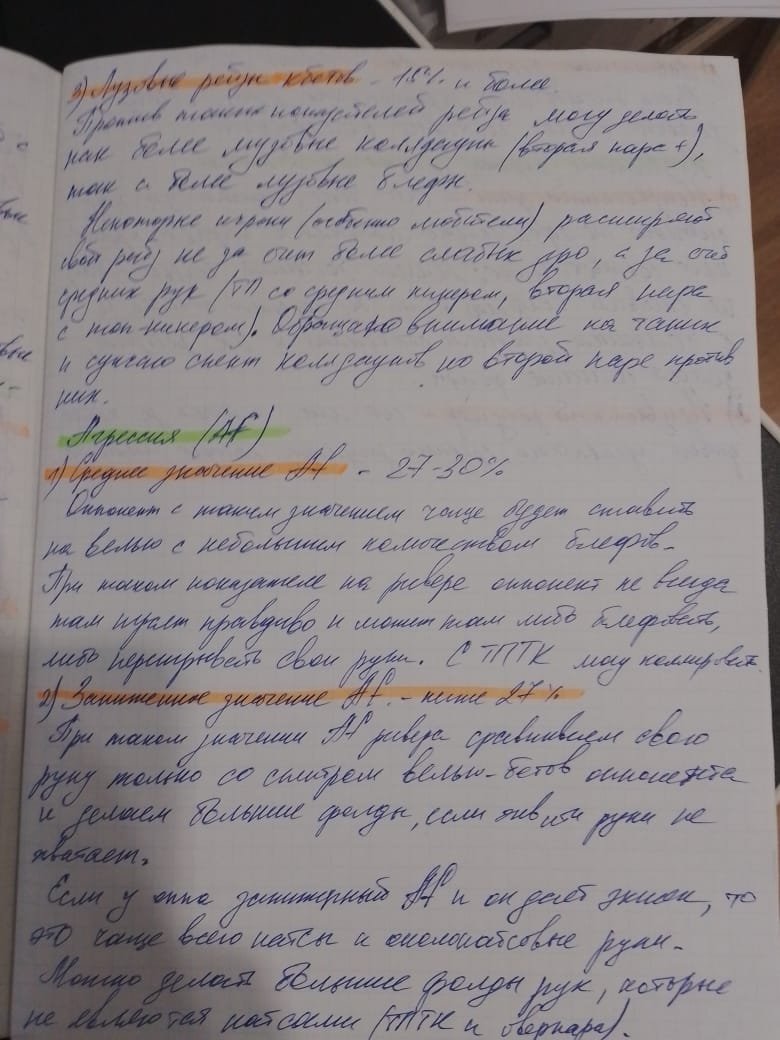 3) Лузовые рейзы кбетов - 15% и более.
Против таких показателей рейза могу делать
как более лузовые коллдауны (вторая пара +),
так и более лузовые бледж.
Некоторые игроки (особенно любители) расширяют
свой рейз не за счет более слабых дро, а за счёт
средних рук (ТП со средним кикером, вторая пара
с топ-кикером). Обращаю внимание на таких
и сужаю спектр коллдаунов по второй паре против
них.
Агрессия (AF)
1) Среднее значение AF - 27-30%
Оппонент с таким значением чаще будет ставить
на велью с небольшим количеством блефов.
При таком показателе на ривере оппонент не всегда
там играет правдиво и может там либо блефовать,
либо переигрывать свои руки. С ТПТК могу коллировать.
2) Заниженное значение AF. - ниже 27%
При таком значении AF ривера сравниваем свою
руку только со спектром велью-бетов оппонента
и делаем большие фолды, если эквити руки не
хватает.
Если у оппа заниженный AF и он дает экшен, то
это чаще всего натсы и околонатсовые руки.
Можно делать большие фолды рук, которые
не являются натсами (ТПТК и оверпара).